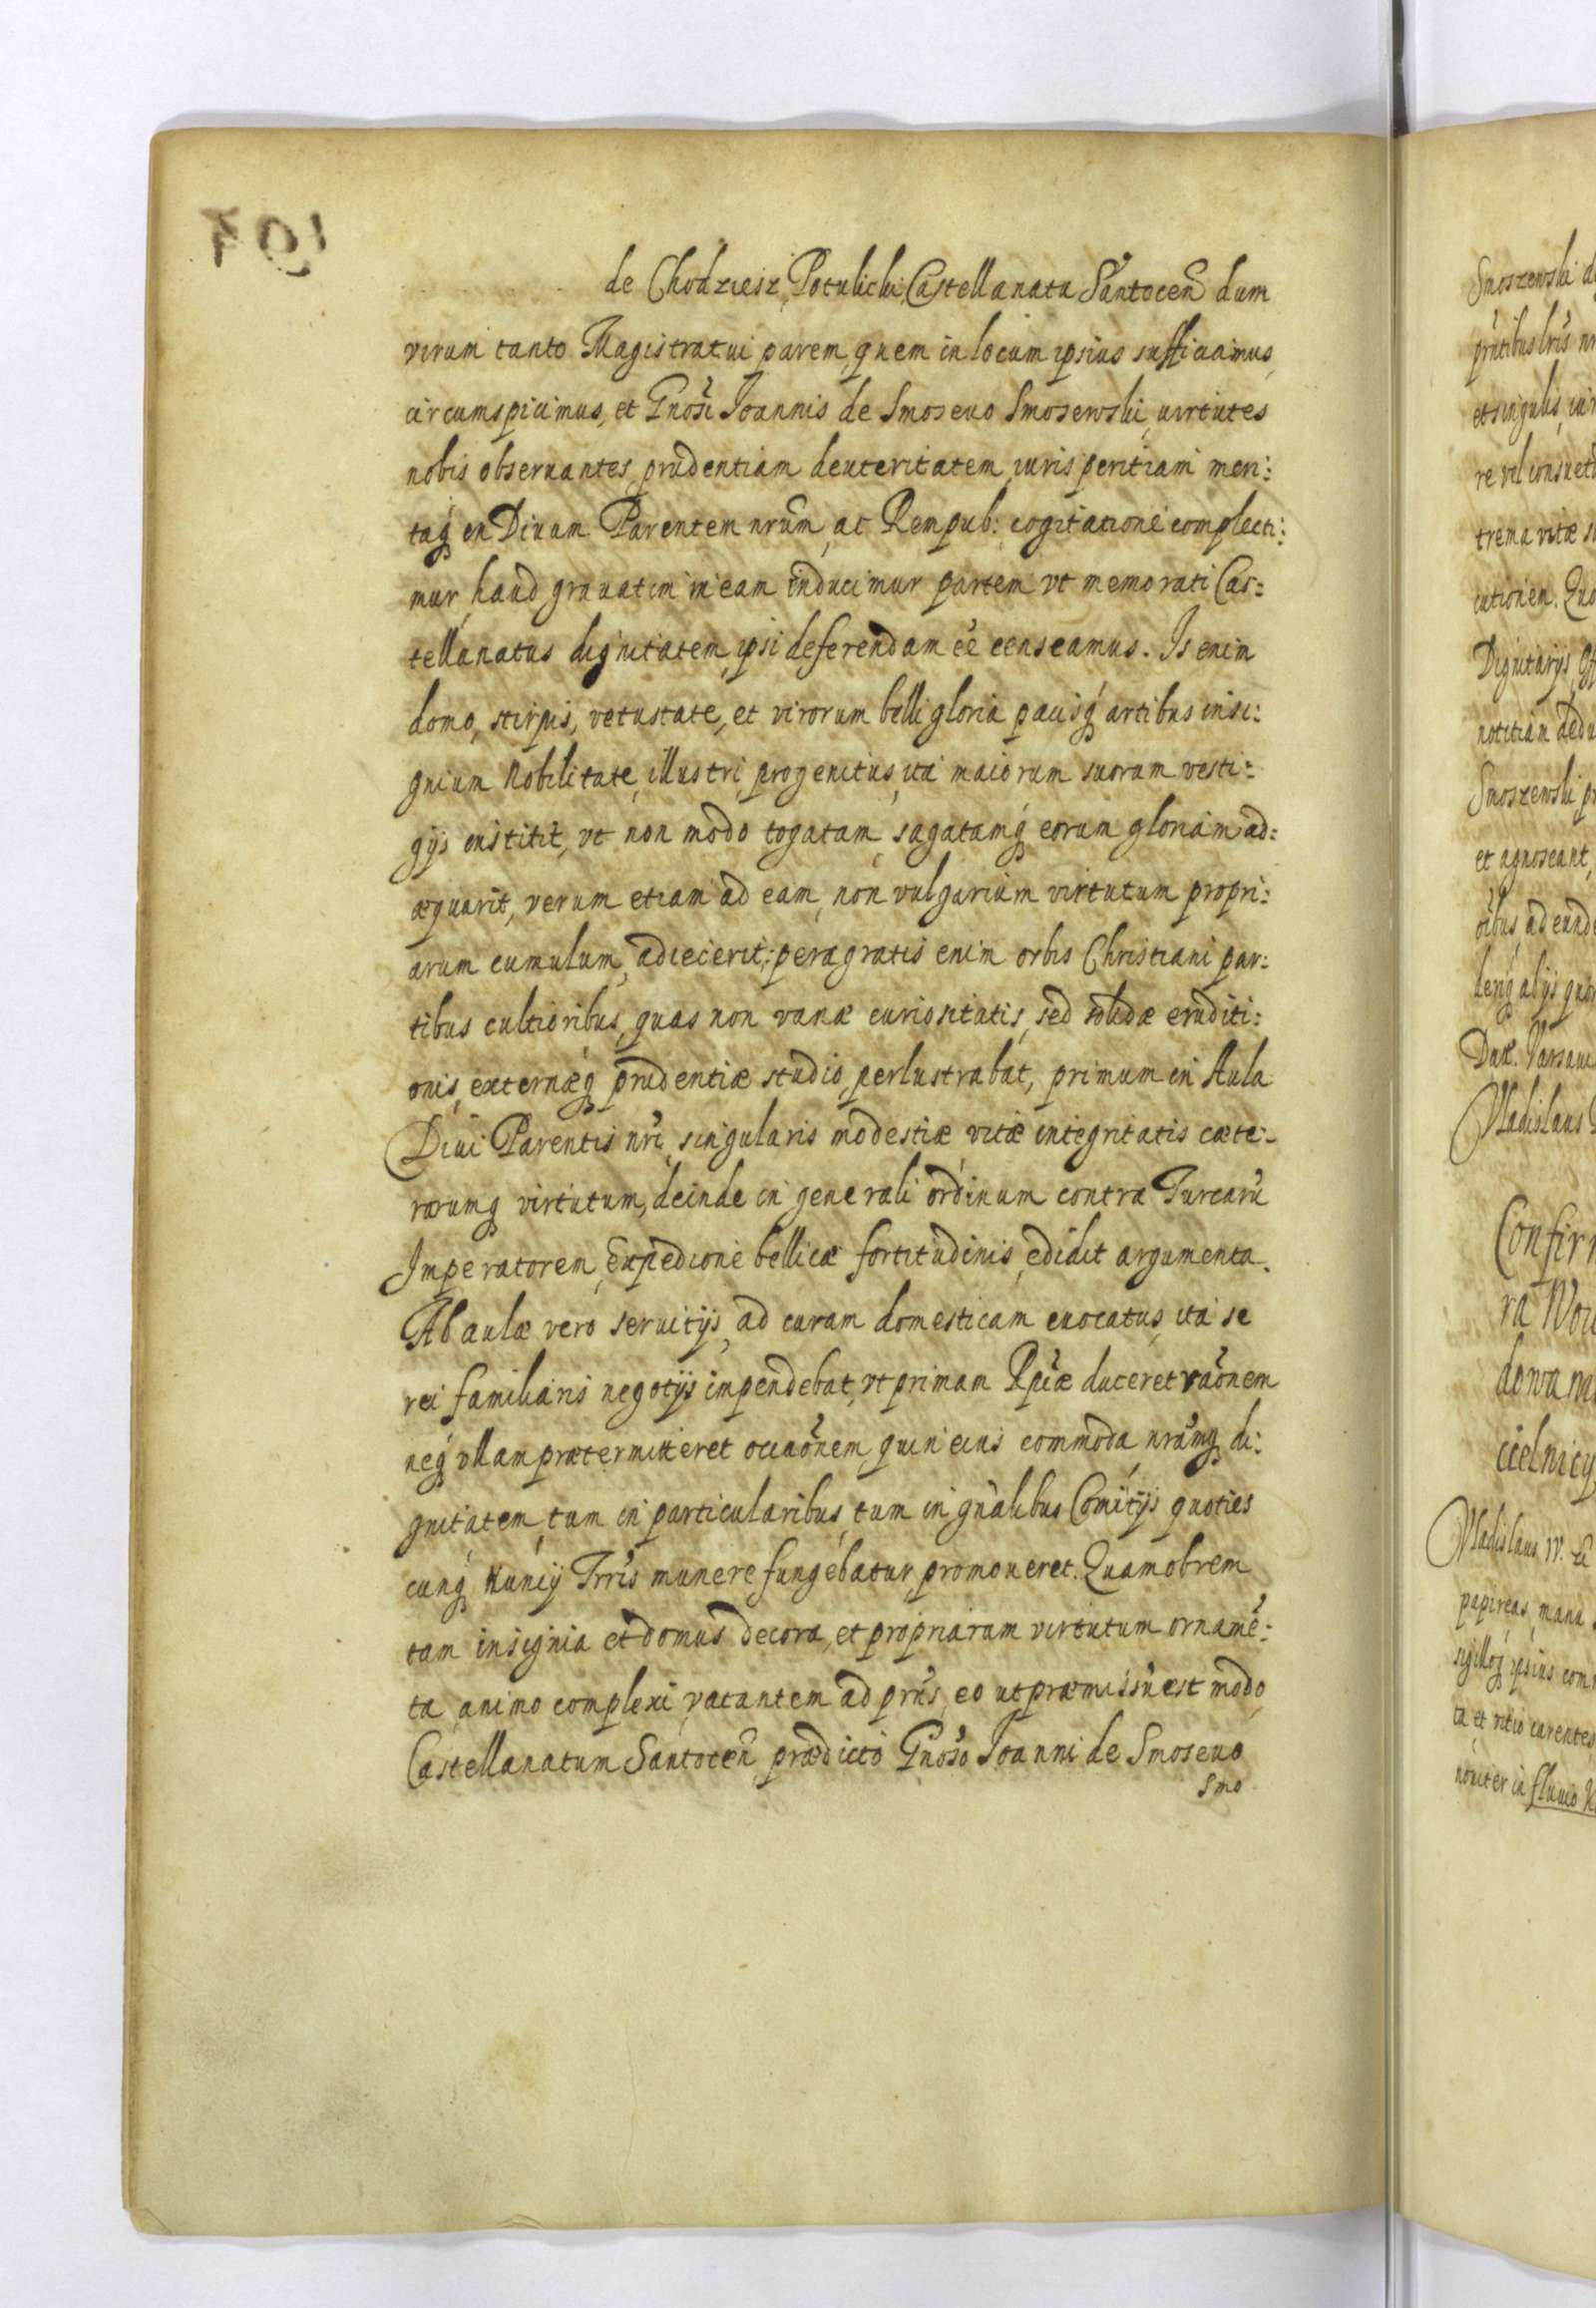 de Chodziesz, Potulicki, Castellanatu Santoceñ dum
virum tanto Magistratui parem, quem in locum ipsius sufficiamus,
circumspicimus, et Gnosi Joannis de Smosevo Smosewski, virtutes
nobis obseruantes, prudentiam dexteritatem, iuris peritiam meri:
taq̃ in Diuum Parentem nrum, ac Rempub: cogitatione complecti:
mur, haud grauatim in eam inducimur partem vt memorati Cas:
tellanatus dignitatem, ipsi deferendam ee censeamus. Is enim
domo, stirpis, vetustate, et virorum belli gloria pacisq̃ artibus insi:
gnium Nobilitate, illustri, progenitus, ita maiorum suorum vesti:
gijs institit, vt non modo togatam, sagatamq̃ eorum gloriam ad:
æquarit, verum etiam ad eam, non vulgarium virtutum propri:
arum cumulum, adiecerit; peragratis enim orbis Christiani par:
tibus cultioribus, quas non vanæ curiositatis, sed solidæ eruditi:
onis, externæq̃ prudentiæ studio, perlustrabat, primum in Aula
Diui Parentis nri, singularis modestiæ vitæ integritatis cæte:
rarumq̃ virtutum, deinde in generali ordinum contra Turcarũ
Imperatorem, Expedicione bellicæ fortitudinis, edidit argumenta.
Ab aulæ vero seruitijs, ad curam domesticam euocatus, ita se
rei familiaris negotijs impendebat, vt primam Rpcæ duceret raõnem
neq̃ vllam prætermitteret occaõnem, quin eius commoda nramq̃ di:
gnitatem, tum in particularibus, tum in gnalibus Comitijs quoties
cunq̃ Nuncij Trris munere fungebatur, promoueret. Quamobrem
tam insignia et domus decora, et propriarum virtutum ornamẽ:
ta, animo complexi, vacantem ad prns, eo ut præmissũ est modo,
Castellanatum Santoceñ, prædicto Gnoso Joanni de Smosevo
Smo
Smoszewski
et singulis
trema vitæ
cutionem.
Dignitarijs
notitiam
Smoszewski
et agnoscant,
Dat. Varsaui
Vladislaus
Confir
ra
dowa
cielnicy
Vladislaus IV.
papireas, manu
ipsius
ta et vitio carentes